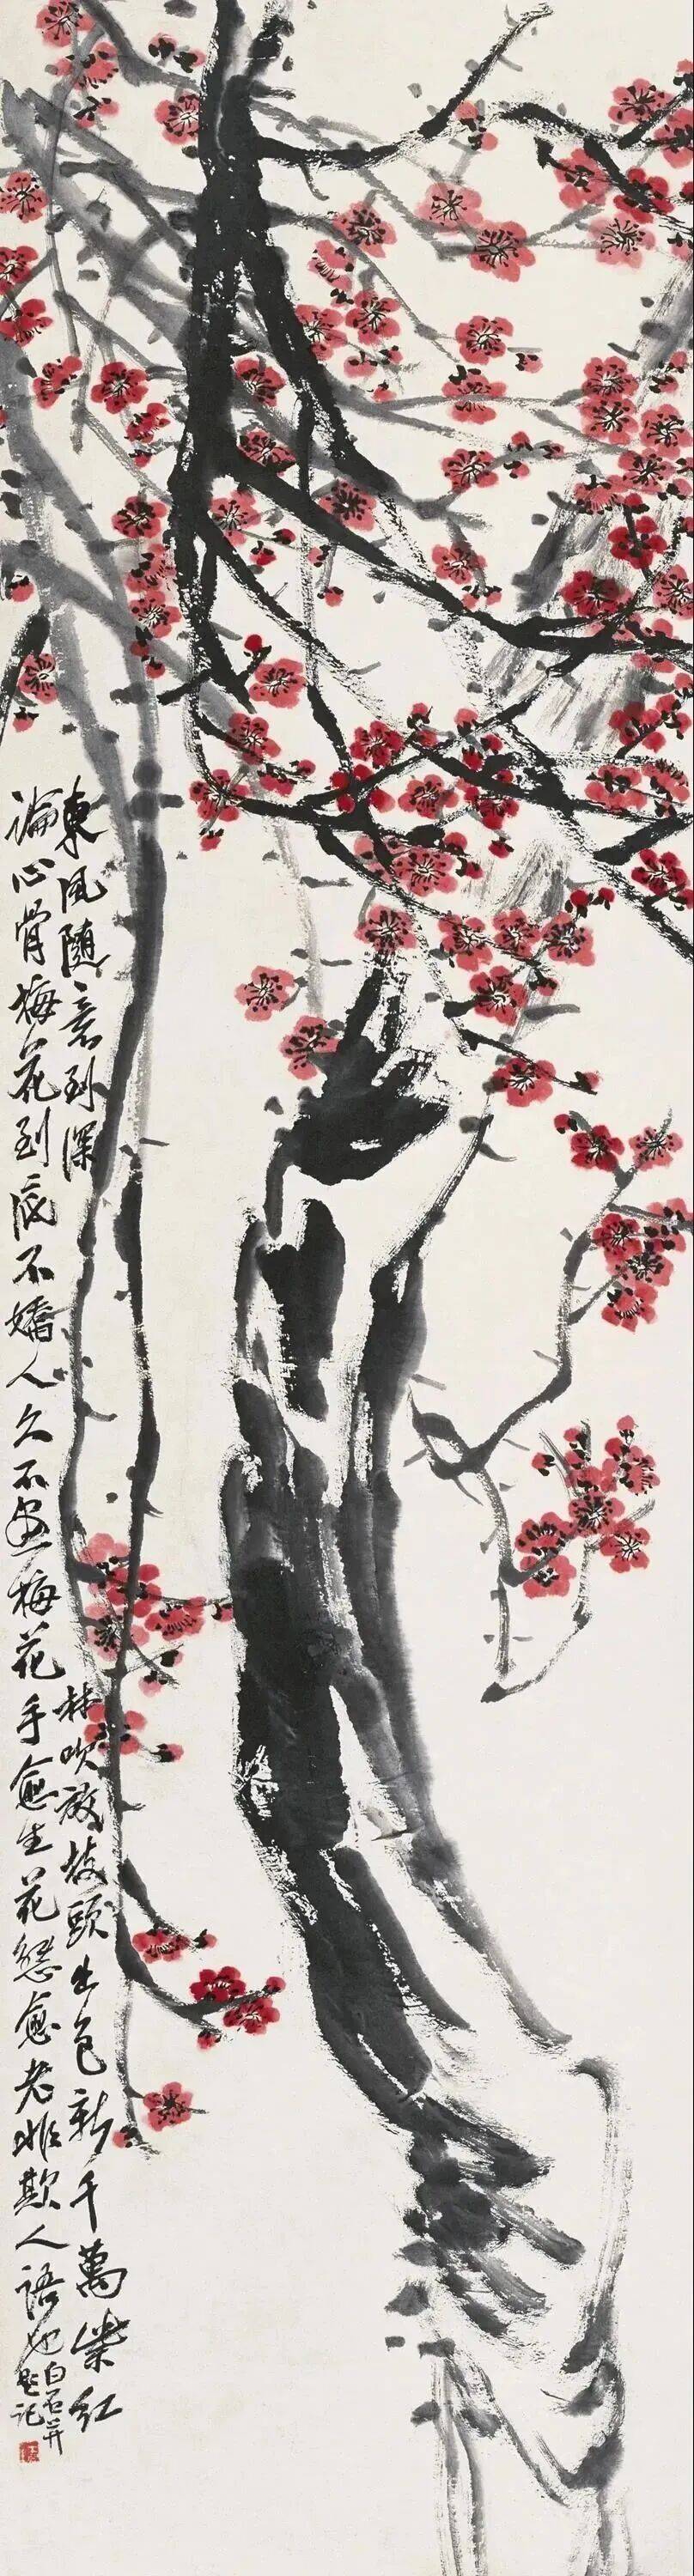 東風隨意到深林吹放枝頭出色新千萬紫紅
論心骨梅花到底不嬌人久不畫梅花手愈生花愁愈老非欺人語也
白石并
題記